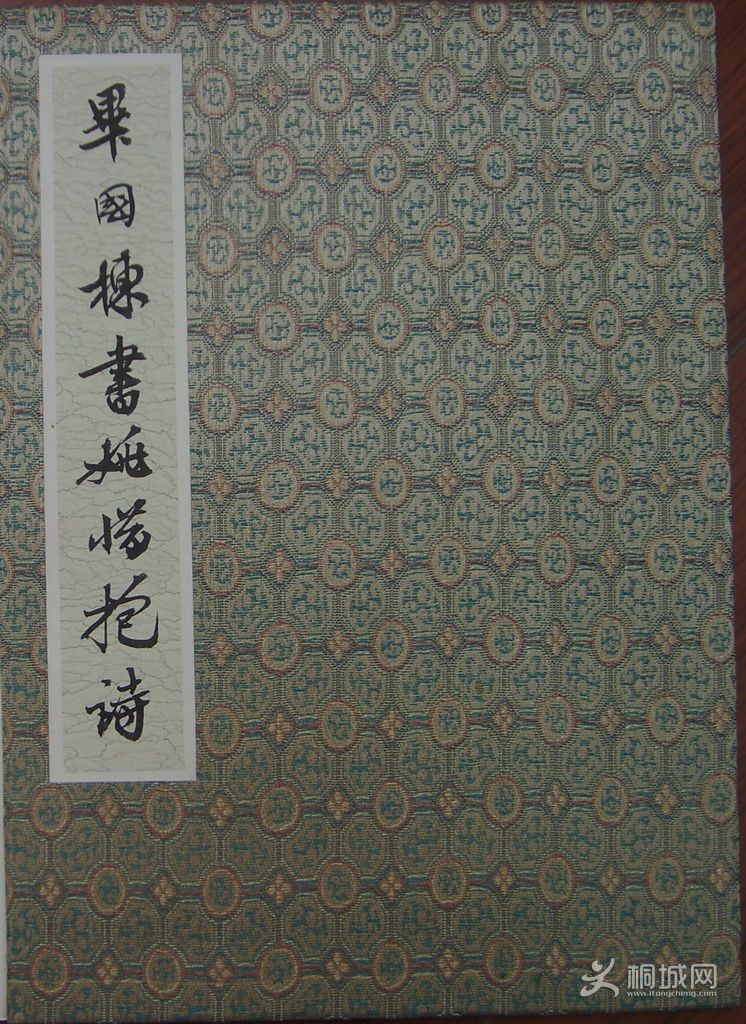 畢國棟書姚惜抱詩
桐城网
www.itongcheng.com